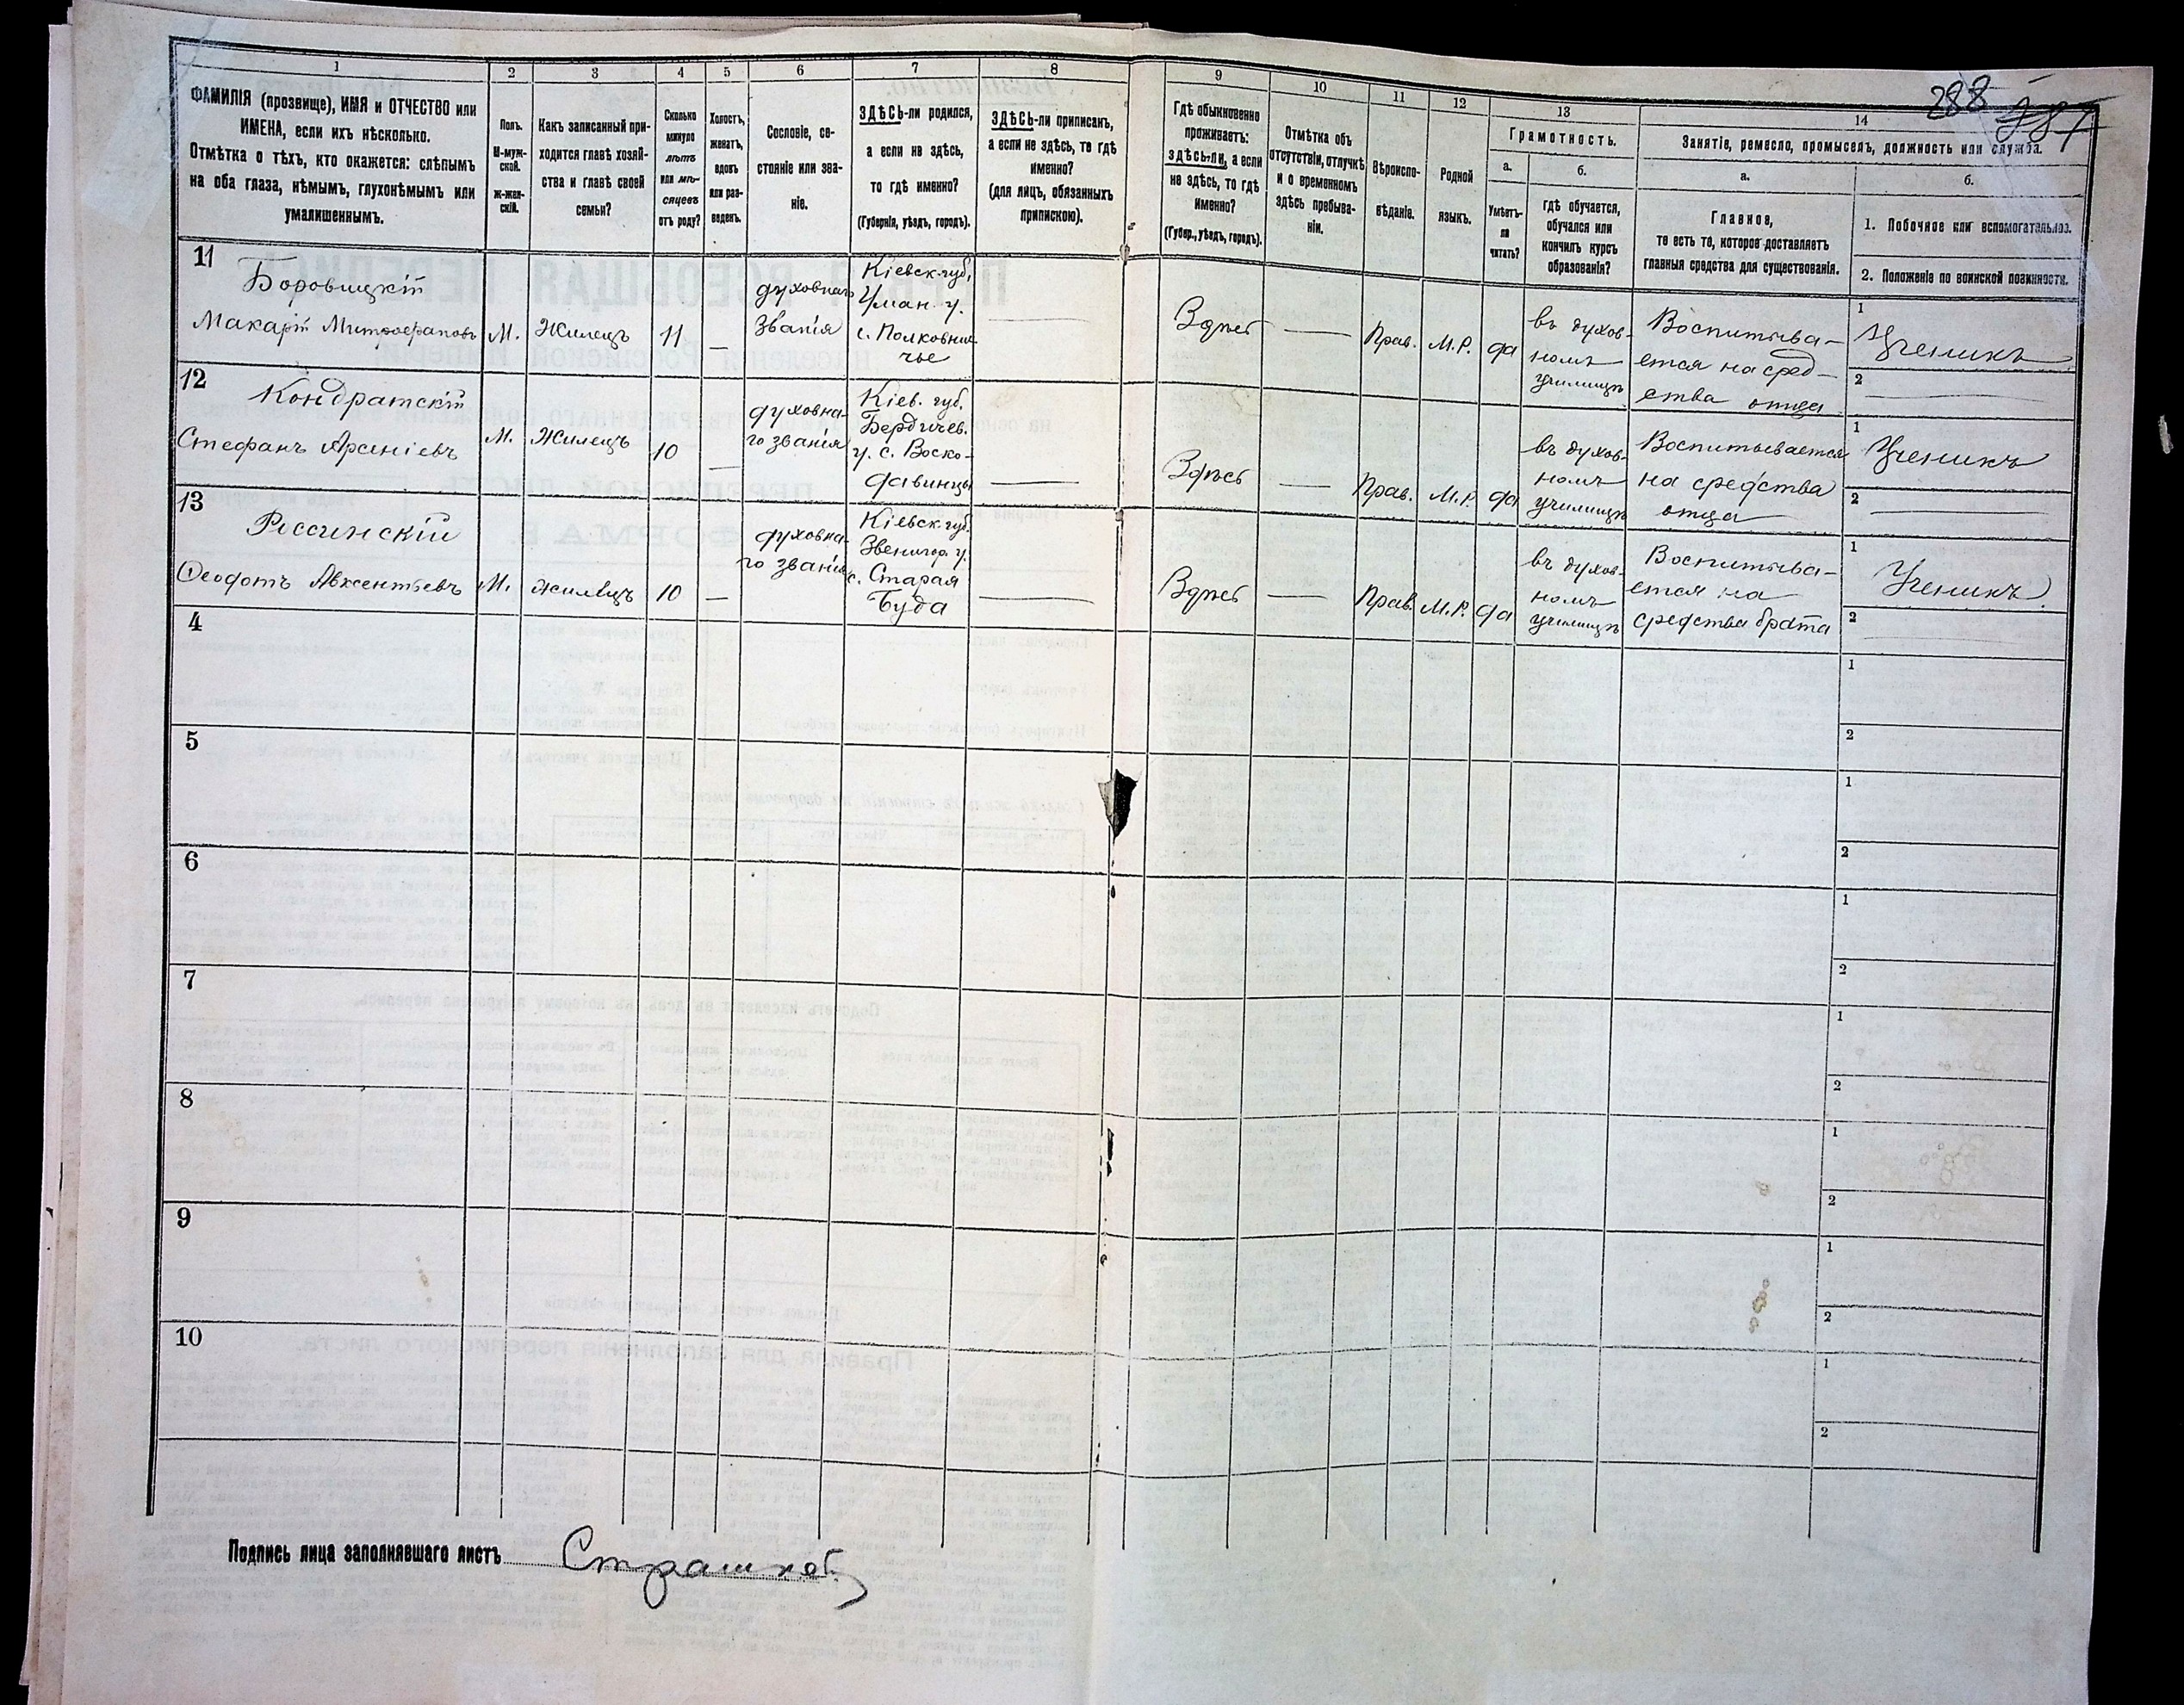 288
1
2
3
4
5
6
7
8
9
10
11
12
13
14
ФАМИЛІЯ (прозвище), ИМЯ и ОТЧЕСТВО или
ИМЕНА, если ихъ нѣсколько.
Отмѣтка о тѣхъ, кто окажется: слѣпымъ
на оба глаза, нѣмымъ, глухонѣмымъ или
умалишеннымъ.
Полъ.
М-муж-
ской.
ж-жен-
скій.
Какъ записанный при-
ходится главѣ хозяй-
ства и главѣ своей
семьи?
Сколько
минуло
лѣтъ
или мѣ-
сяцевъ
отъ роду?
Холостъ,
женатъ,
вдовъ
или раз-
веденъ.
Сословіе, со-
стояніе или зва-
ніе.
ЗДѢСЬ-ли родился,
а если не здѣсь,
то гдѣ именно?
(Губернія, уѣздъ, городъ).
ЗДѢСЬ-ли приписанъ,
а если не здѣсь, то гдѣ
именно?
(для лицъ, обязанныхъ
припискою).
Гдѣ обыкновенно
проживаетъ:
здѣсь-ли, а если
не здѣсь, то гдѣ
именно?
(Губер., уѣздъ, городъ).
Отмѣтка объ
отсутствіи, отлучкѣ
и о временномъ
здѣсь пребыва-
ніи.
Вѣроиспо-
вѣданіе.
Родной
языкъ.
Грамотность.
а.
Умѣетъ-
ли
читать?
б.
гдѣ обучается,
обучался или
кончилъ курсъ
образованія?
Занятіе, ремесло, промыселъ, должность или служба.
а.
Главное,
то есть то, которое доставляетъ
главныя средства для существованія.
б.
1. Побочное или вспомогательное.
2. Положеніе по воинской повинности.
11
Боровицкій
Макарій Митрофановъ
М.
Жилецъ
11
—
духовнаго
званія
Кіевск. губ.
Уман. у.
с. Полковни-
чье
—
Здѣсь
—
Прав.
М.Р.
да
въ духов-
номъ
училищѣ
Воспитыва-
ется на сред-
ства отца
1
Ученикъ
2
—
12
Кондратскій
Стефанъ Арсеніевъ
М.
Жилецъ
10
—
духовна-
го званія
Кіев. губ.
Бердичев.
у. с. Воско-
давинцы
—
Здѣсь
—
Прав.
М.Р.
да
въ духов-
номъ
училищѣ
Воспитывается
на средства
отца
1
Ученикъ
2
—
13
Ѳеодотъ Авксентьевъ
М.
жилецъ
10
—
духовна-
го званія
Кіевск. губ.
Звенигор. у.
с. Старая
Буда
—
Здѣсь
—
Прав.
М.Р.
да
въ духов-
номъ
училищѣ
Воспитыва-
ется на
средства брата
1
Ученикъ
2
4
1
2
5
1
2
6
1
2
7
1
2
8
1
2
9
1
2
10
1
2
Подпись лица заполнявшаго листъ